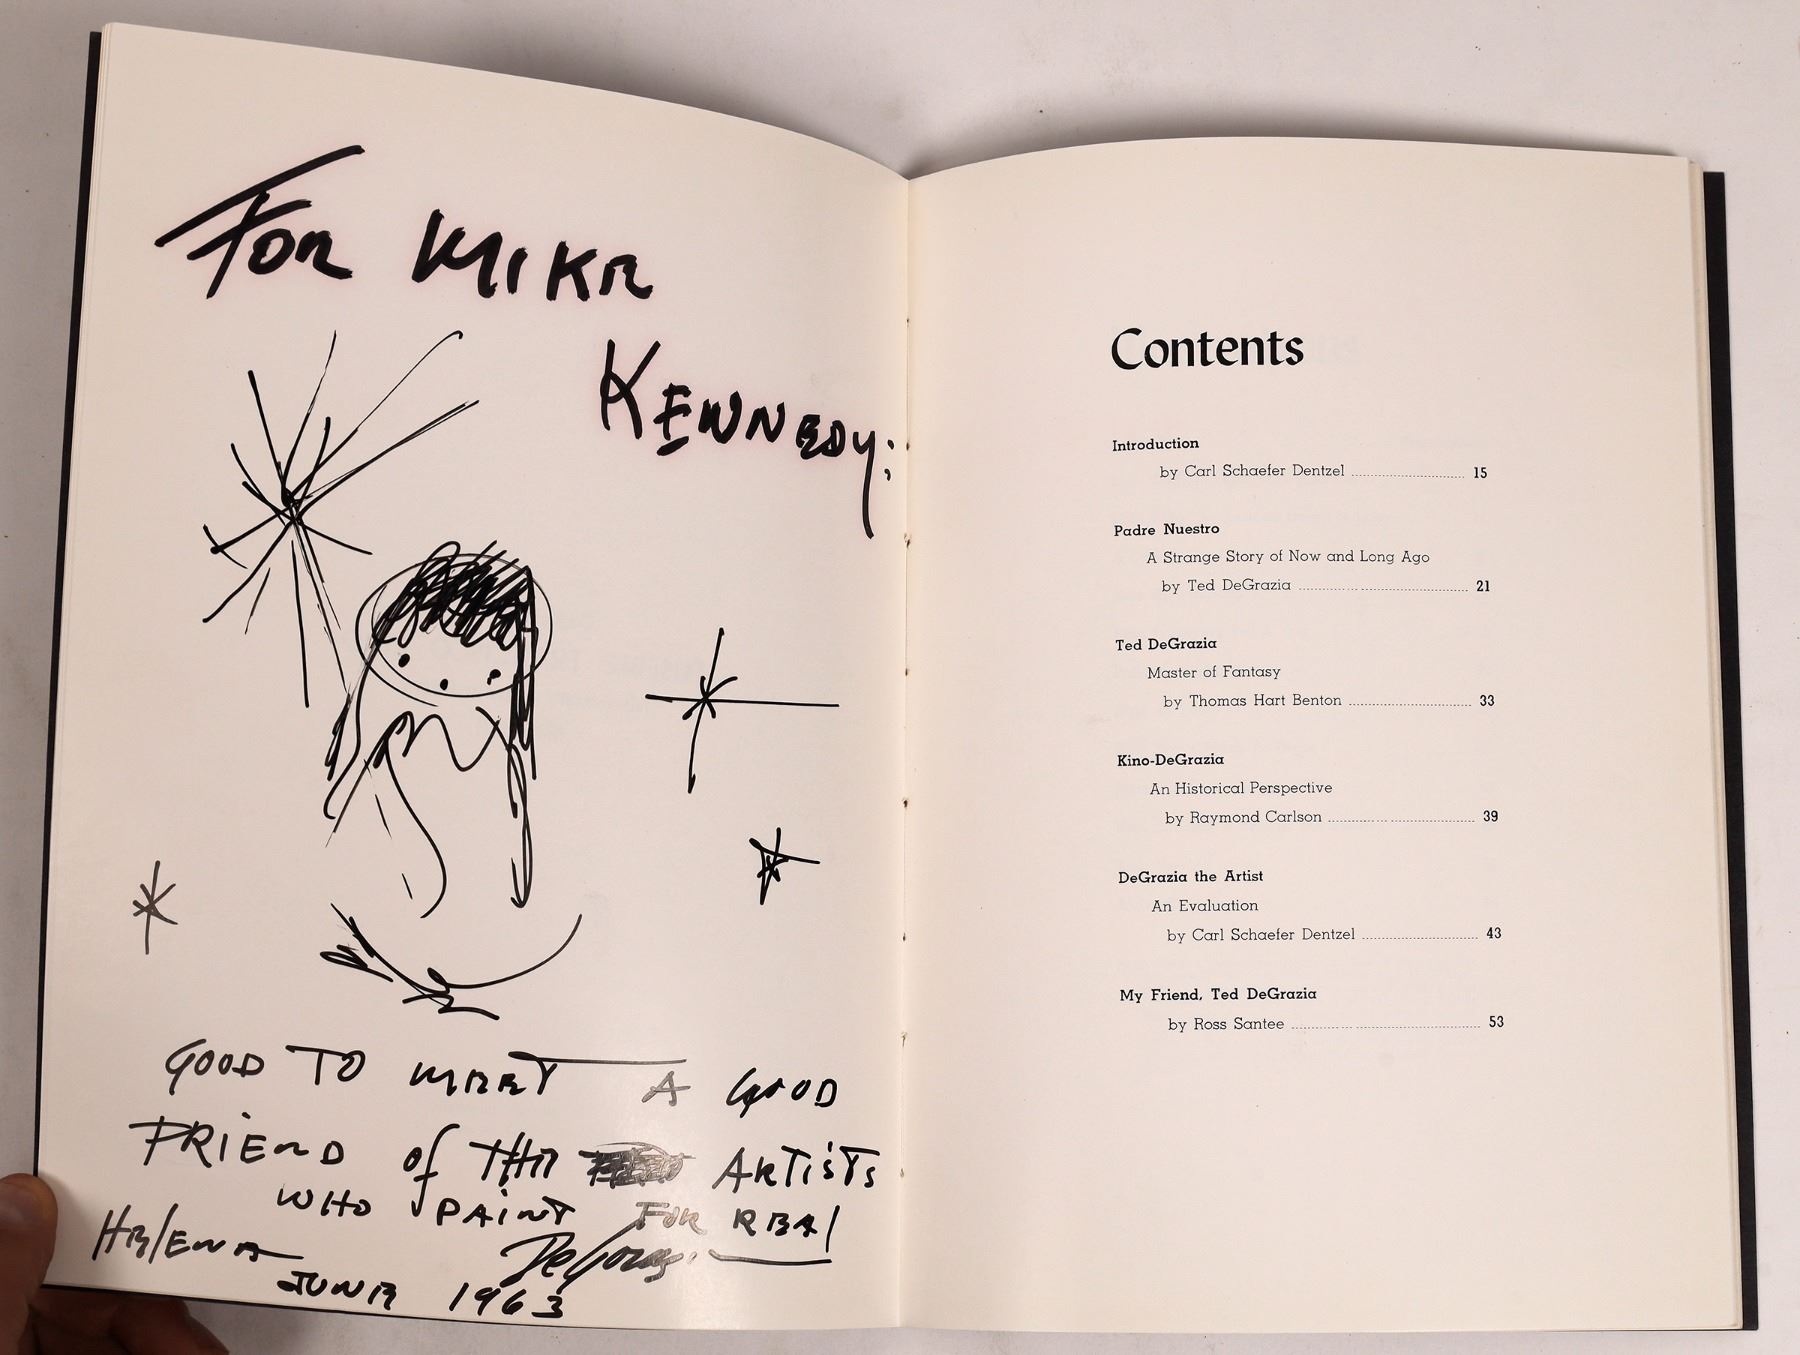 FOR MIKE
KENNEDY:
GOOD TO MEET A GOOD
FRIEND of THE ARTISTS
WHO PAINT FOR REAl
HElENA DeGrazia
JUNE 1963
Contents
Introduction
by Carl Schaefer Dentzel ........................ 15
Padre Nuestro
A Strange Story of Now and Long Ago
by Ted DeGrazia ........................ 21
Ted DeGrazia
Master of Fantasy
by Thomas Hart Benton ........................ 33
Kino-DeGrazia
An Historical Perspective
by Raymond Carlson ........................ 39
DeGrazia the Artist
An Evaluation
by Carl Schaefer Dentzel ........................ 43
My Friend, Ted DeGrazia
by Ross Santee ........................ 53